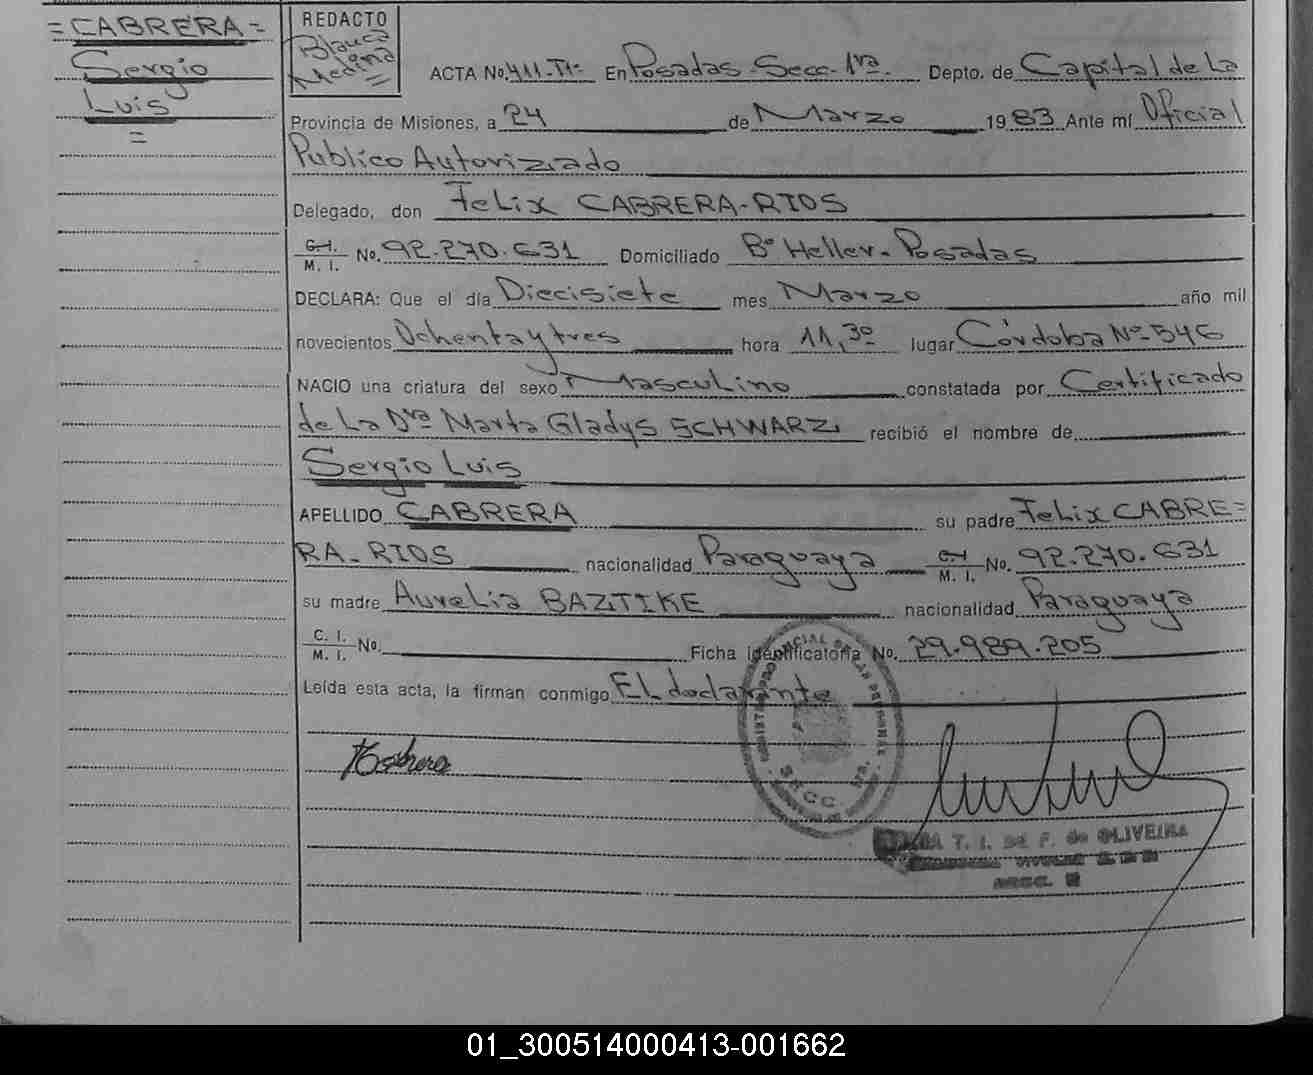 = CABRERA =
Sergio
Luis
=
REDACTO
Blanca
Medina
ACTA No. 411-Tº1º En Posadas-Secc-1ra. Depto. de Capital de La
Provincia de Misiones, a 24 de Marzo 1983 Ante mí Oficial
Publico Autorizado
Delegado, don Felix CABRERA-RIOS
C. I.
M. I. No. 92.270.631 Domiciliado Bº Heller-Posadas
DECLARA: Que el día Diecisiete mes Marzo año mil
novecientos Ochenta y tres hora 11,30 lugar Córdoba Nº-546
NACIO una criatura del sexo Masculino constatada por Certificado
de La Dra Marta Gladys SCHWARZ recibió el nombre de
Sergio Luis
APELLIDO CABRERA su padre Felix CABRE=
RA-RIOS nacionalidad Paraguaya C. I.
M. I. No. 92.270.631
su madre Aurelia BAZTIKE nacionalidad Paraguaya
C. I.
M. I. No. Ficha identificatoria No. 29.989.205
Leída esta acta, la firman conmigo EL declarante
SECC. 1ra.
T. I. DE F. de OLIVEIRA
01_300514000413-001662